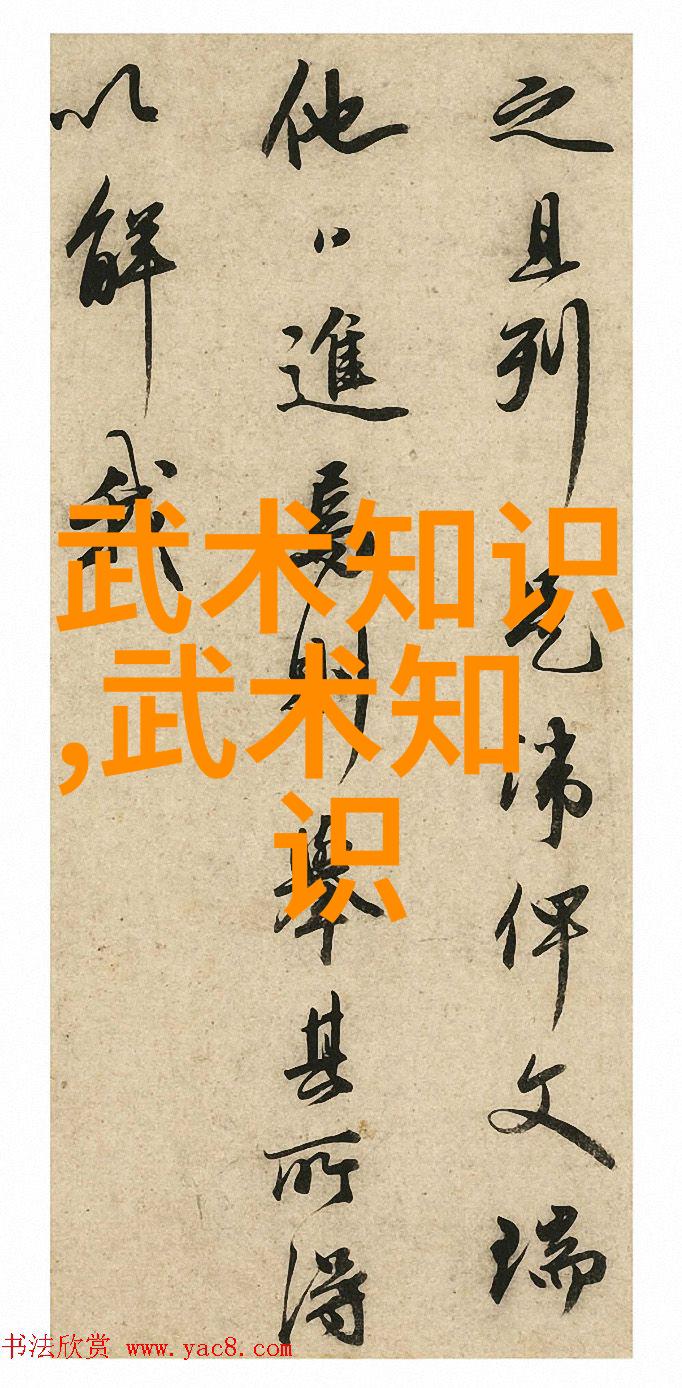 之且列諱俾文瑞
他進則舉其所得
以解我
武术知识
,武术知
识
书法欣赏 www.yac8.com